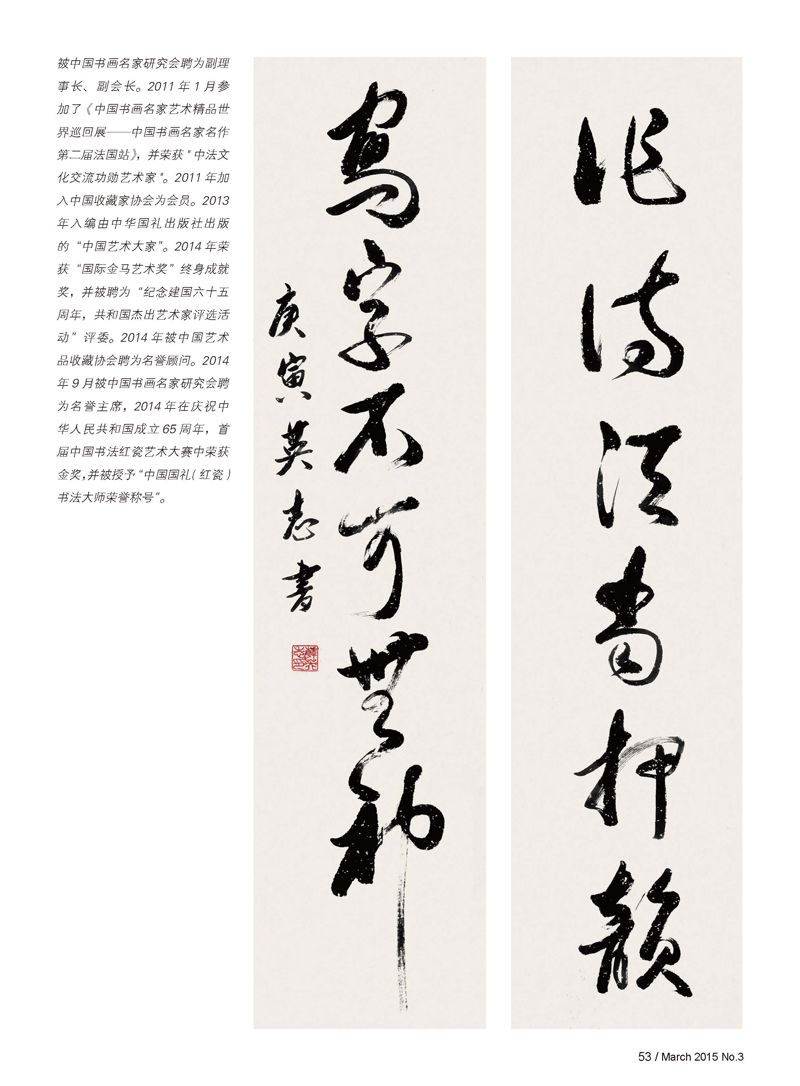 被中国书画名家研究会聘为副理
事长、副会长。2011 年 1 月参
加了《中国书画名家艺术精品世
界巡回展——中国书画名家名作
第二届法国站》，并荣获 "中法文
化交流功勋艺术家 "。2011 年加
入中国收藏家协会为会员。2013
年入编由中华国礼出版社出版
的 “中国艺术大家”。2014 年荣
获 “国际金马艺术奖” 终身成就
奖，并被聘为 “纪念建国六十五
周年，共和国杰出艺术家评选活
动” 评委。2014 年被中国艺术
品收藏协会聘为名誉顾问。2014
年 9 月被中国书画名家研究会聘
为名誉主席，2014 年在庆祝中
华人民共和国成立 65 周年，首
届中国书法红瓷艺术大赛中荣获
金奖，并被授予 “中国国礼（红瓷）
书法大师荣誉称号”。
作诗须当押韻
写字不可無神
庚寅英志書
53 / March 2015 No.3